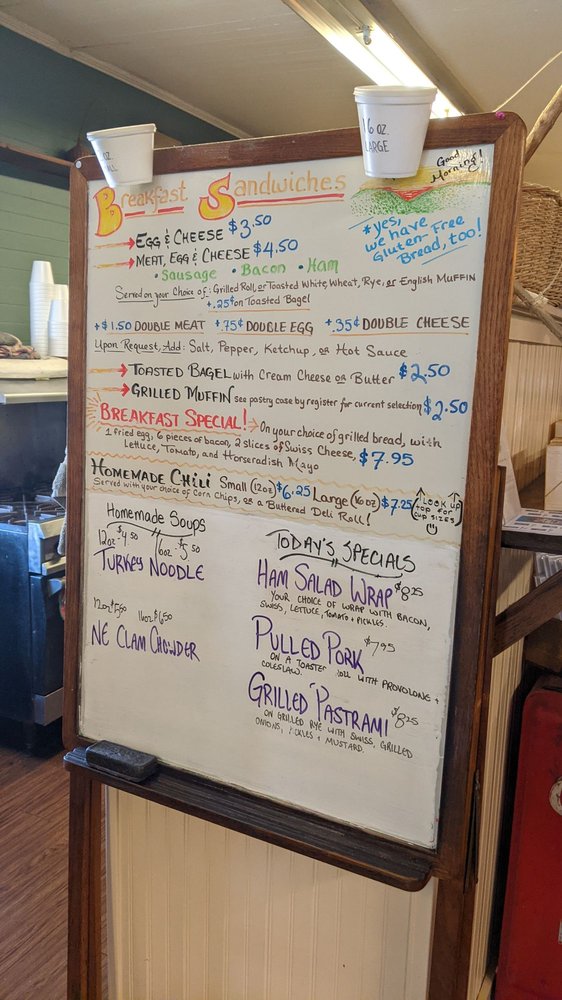 16 OZ.
LARGE
OZ.
Good Morning!
Breakfast Sandwiches
*yes,
we have
Gluten-Free
Bread, too!
EGG & CHEESE $3.50
MEAT, EGG & CHEESE $4.50
• Sausage • Bacon • Ham
Served on your Choice of: Grilled Roll, or Toasted White, Wheat, Rye, or English MUFFIN
+.25¢ on Toasted Bagel
+$1.50 DOUBLE MEAT +.75¢ DOUBLE EGG +.35¢ DOUBLE CHEESE
Upon Request, Add: Salt, Pepper, Ketchup, or Hot Sauce
TOASTED BAGEL with Cream Cheese or Butter $2.50
GRILLED MUFFIN see pastry case by register for current selection $2.50
BREAKFAST SPECIAL! On your choice of grilled bread, with
1 fried egg, 6 pieces of bacon, 2 slices of Swiss Cheese,
Lettuce, Tomato, and Horseradish Mayo $7.95
HOMEMADE CHILI Small (12oz) $6.25 Large (16oz) $7.25
Served with your choice of Corn Chips, or a Buttered Deli Roll!
(LOOK up
top for
cup sizes)
Homemade Soups
12oz $4.50 16oz $5.50
TURKEY NOODLE
12oz $5.50 16oz $6.50
NE CLAM CHOWDER
TODAY'S SPECIALS
HAM SALAD WRAP $8.25
YOUR CHOICE OF WRAP WITH BACON,
SWISS, LETTUCE, TOMATO + PICKLES.
PULLED PORK $7.95
ON A TOASTED ROLL WITH PROVOLONE +
COLESLAW.
GRILLED PASTRAMI $8.25
ON GRILLED RYE WITH SWISS, GRILLED
ONIONS, PICKLES + MUSTARD.